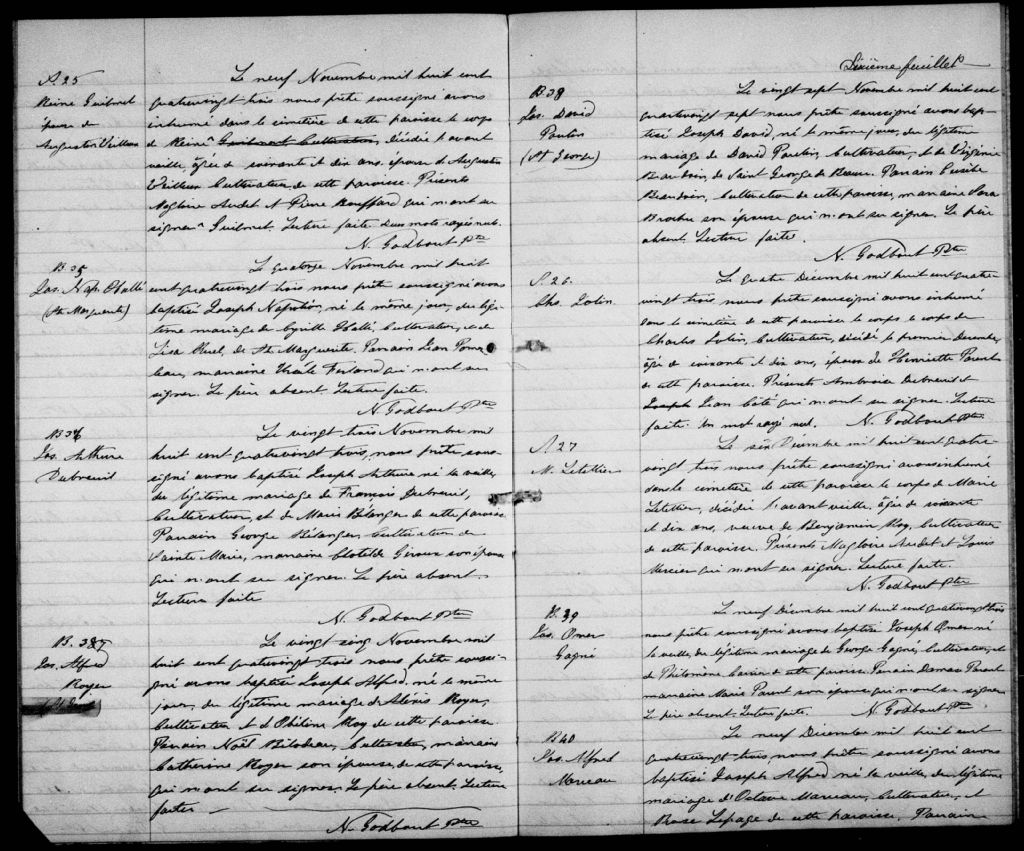 S. 25
Reine Guilmet
épouse de
Augustin Veilleux
Le neuf Novembre mil huit cent
quatrevingt trois nous prêtre soussigné avons
inhumé dans le cimetière de cette paroisse le corps
de Reine^ Guilmet Cultivateur, décédée l'avant
veille, âgée de soixante et dix ans, épouse de Augustin
Veilleux Cultivateur de cette paroisse. Présents
Magloire Audet et Pierre Bouffard qui n'ont su
signer ^ Guilmet. Lecture faite. Deux mots rayés nuls.
N. Godbout Ptre
B. 35
Jos. Nap. Hallé
(Ste Marguerite)
Le quatorze Novembre mil huit
cent quatrevingt trois nous prêtre soussigné avons
baptisé Joseph Napoléon, né le même jour, du légi-
time mariage de Cyrille Hallé, Cultivateur, et de
Lisa Ruel, de Ste Marguerite. Parrain Jean Pomer-
leau, marraine Ferland qui n'ont su
signer. Le père absent. Lecture faite.
N. Godbout Ptre
B 36
Jos. Arthur
Dubreuil
Le vingt trois Novembre mil
huit cent quatrevingt trois, nous prêtre sous-
signé avons baptisé Joseph Arthur né la veille,
du légitime mariage de François Dubreuil,
Cultivateur, et de Marie Bélanger de cette paroisse
Parrain George Bélanger, Cultivateur de
Sainte Marie, marraine Clotilde Giroux son épouse
qui n'ont su signer. Le père absent.
Lecture faite
N. Godbout Ptre
B. 37
Jos. Alfred
Royer
Le vingt cinq Novembre mil
huit cent quatrevingt trois nous prêtre soussi-
gné avons baptisé Joseph Alfred, né le même
jour, du légitime mariage de Alexis Royer,
Cultivateur et d'Obéline Roy de cette paroisse
Parrain Noël Bilodeau, Cultivateur, marraine
Catherine Royer son épouse, de cette paroisse,
qui n'ont su signer. Le père absent. Lecture
faite.
N. Godbout Ptre
Dixième feuillet
B 38
Jos. David
Poulin
(St George)
Le vingt sept Novembre mil huit cent
quatrevingt sept nous prêtre soussigné avons bap-
tisé Joseph David, né le même jour, du légitime
mariage de David Poulin, Cultivateur, et de Virginie
Beaudoin, de Saint George de Beauce. Parrain
Beaudoin, Cultivateur de cette paroisse, marraine Sara
son épouse qui n'ont su signer. Le père
absent. Lecture faite.
N. Godbout Ptre
S. 26
Chs Lotin
Le quatre Décembre mil huit cent quatre
vingt trois, nous prêtre soussigné avons inhumé
dans le cimetière de cette paroisse le corps le corps de
Charles Lotin, Cultivateur, décédé le premier Décembre,
âgé de soixante et dix ans, époux de Henriette Parent
de cette paroisse. Présents Ambroise Dubreuil et
Joseph Jean Côté qui n'ont su signer. Lecture
faite. Un mot rayé nul. N. Godbout Ptre
S. 27
M. Letellier
Le six Décembre mil huit cent quatre
vingt trois nous prêtre soussigné avons inhumé
dans le cimetière de cette paroisse le corps de Marie
Letellier, décédée l'avant veille, âgée de soixante
et dix ans, veuve de Benjamin Roy, Cultivateur
de cette paroisse. Présents Magloire Audet et Louis
Mercier qui n'ont su signer. Lecture faite.
N. Godbout Ptre
B. 39
Jos. Omer
Gagné
Le neuf Décembre mil huit cent quatrevingt trois
nous prêtre soussigné avons baptisé Joseph Omer né
la veille, du légitime mariage de George Gagné, Cultivateur, et
de Philomène de cette paroisse Parrain Damase Parent
marraine Marie Parent son épouse qui n'ont su signer
Le père absent. Lecture faite. N. Godbout Ptre
B 40
Jos. Alfred
Mareau
Le neuf Décembre mil huit cent
quatrevingt trois nous prêtre soussigné avons
baptisé Joseph Alfred né la veille, du légitime
mariage d'Octave Mareau, Cultivateur, et
Rose Lepage de cette paroisse. Parrain